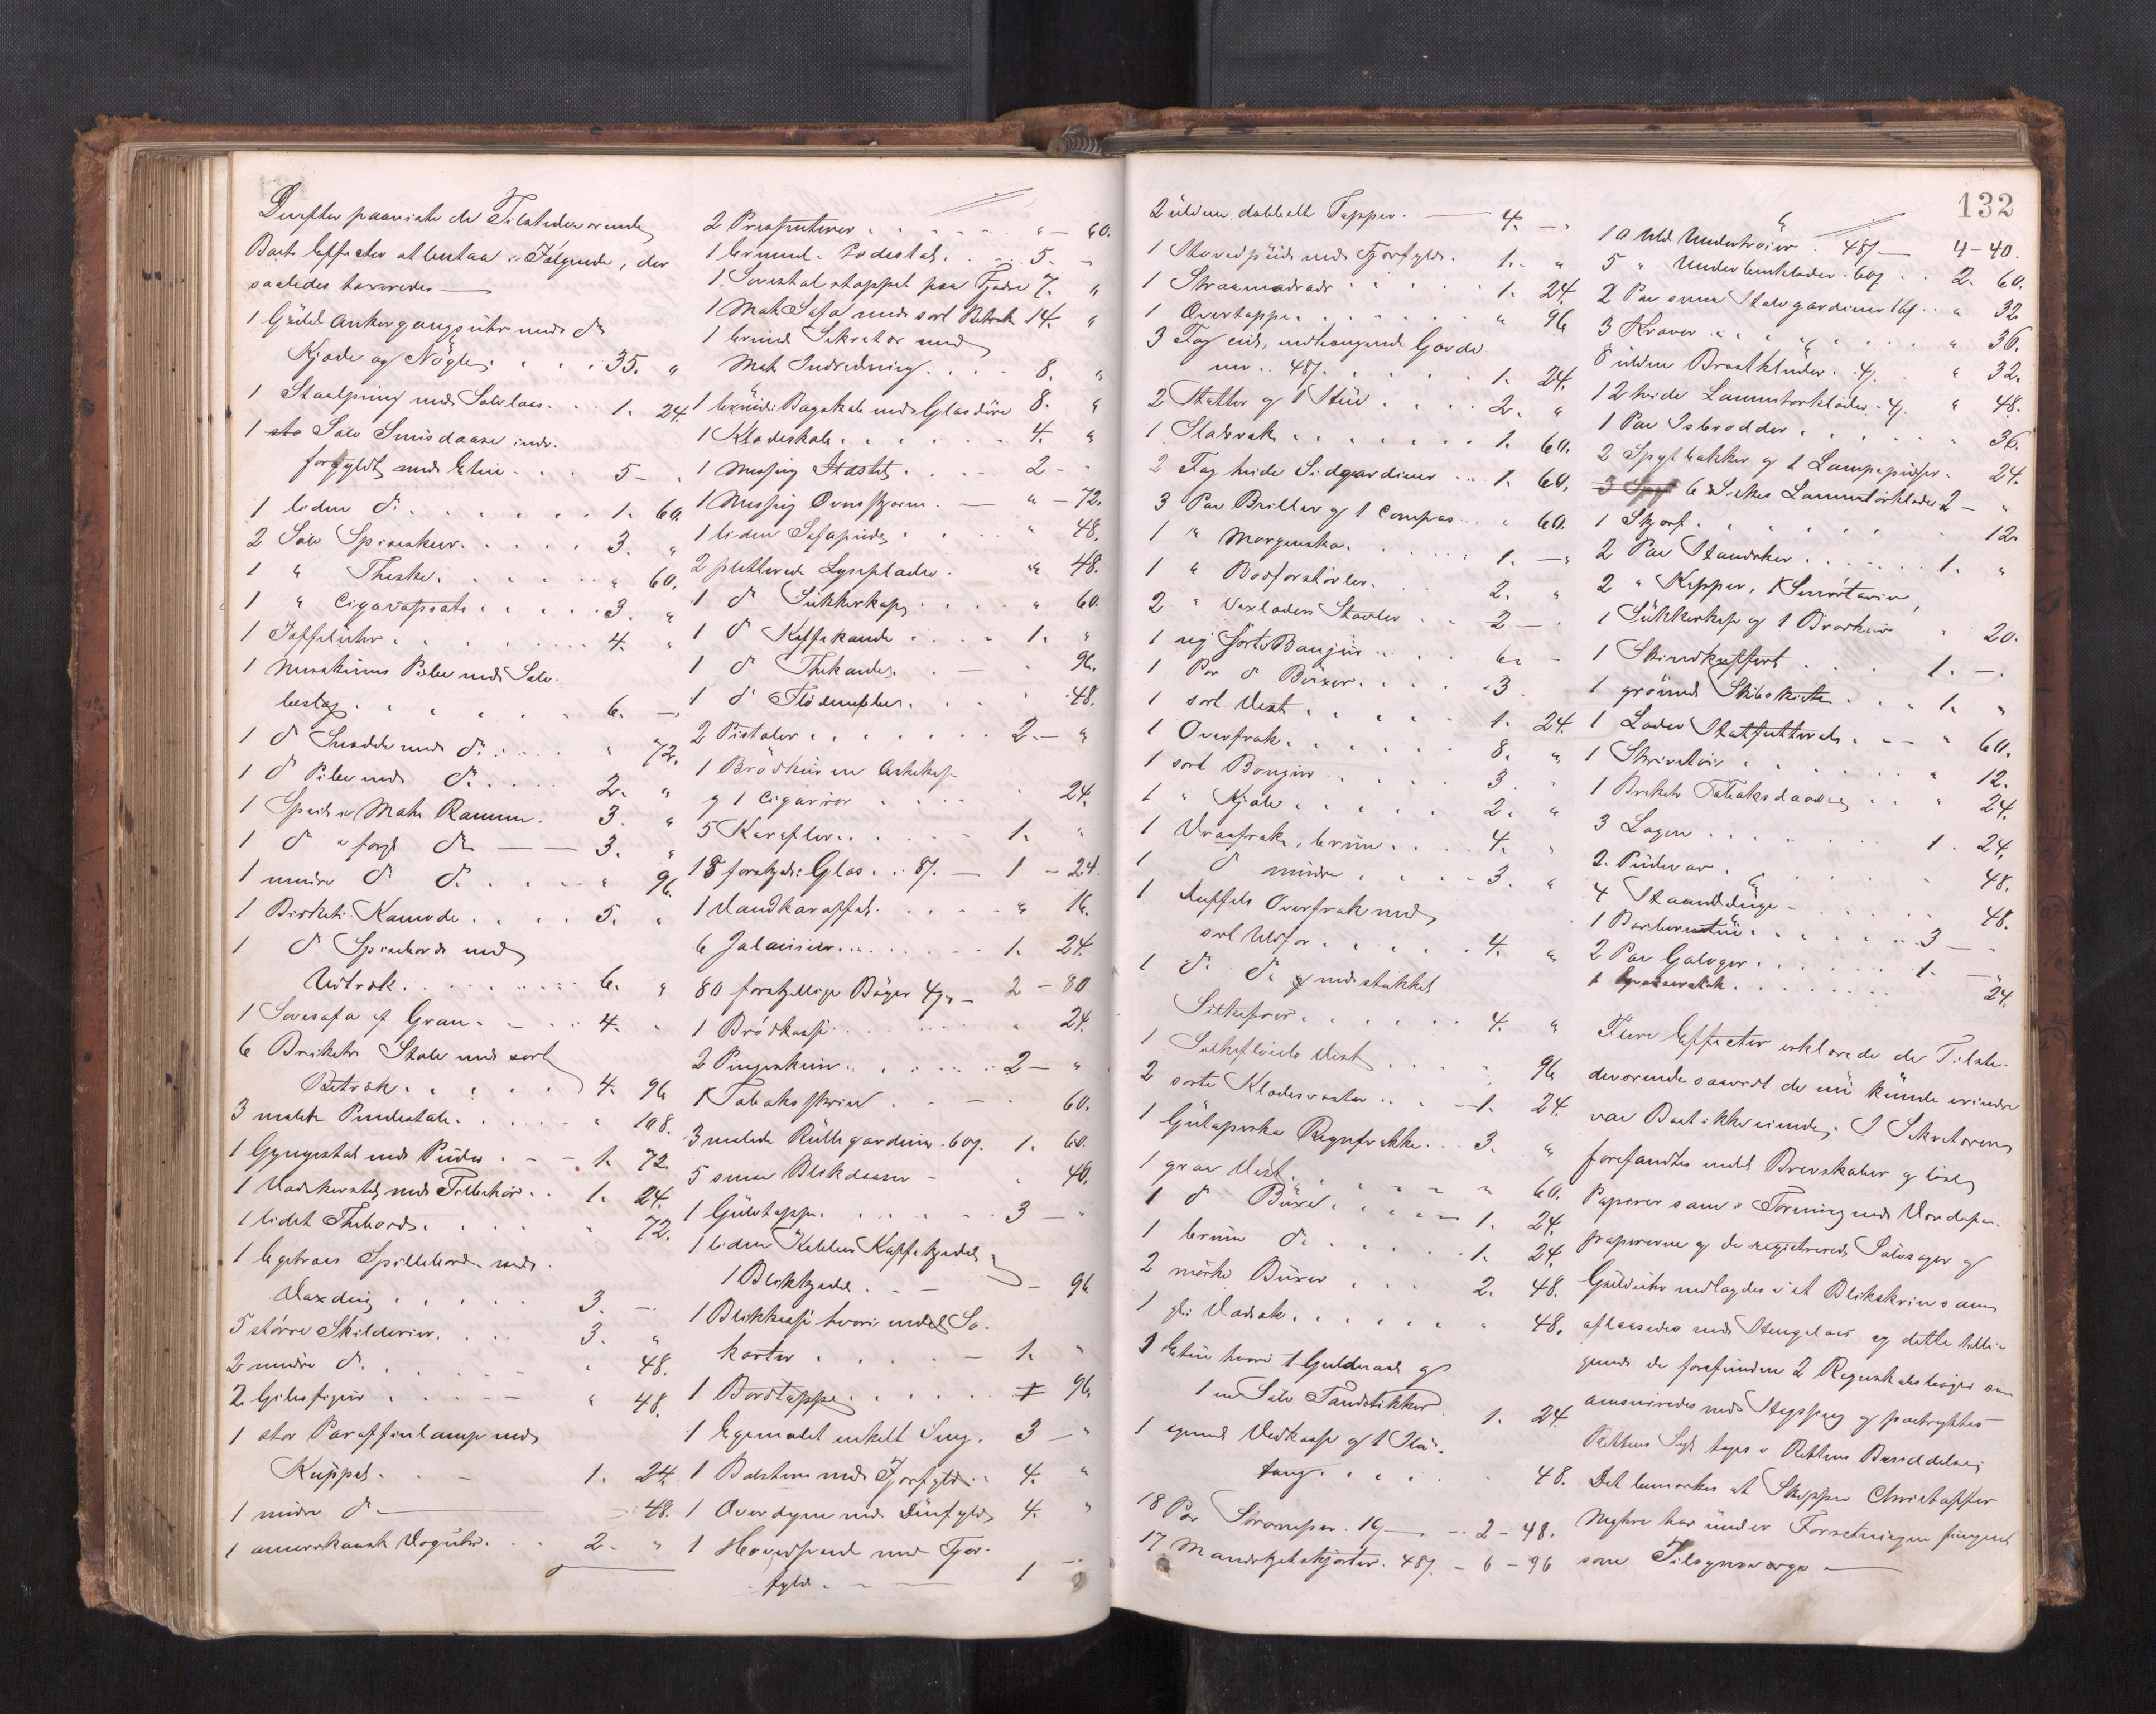 Derefter paaviste de Tilstedeværende
Boets Effecter at bestaa i Følgende, der
saaledes taxeredes —
1 Guld Ankergangsuhr med do
Kjæde og Nøgle. . . . 35. "
1 Staalpung med Sølvlaas. . . 1. 24.
1 Sølv Snusdaase indv.
forgyldt med Etui . . . 5 -
1 liden do . . . . . 1. 60.
2 Sølv Spiseskeer. . . . . 3. "
1 " Theske. . . . . " 60.
1 " Cigarspids . . . . . 3. "
1 Taffeluhr . . . . . 4. "
1 Merskums Pibe med Sølv-
beslag . . . . . 6. —
1 do Snadde med do . . . " 72.
1 do Pibe med do . . . . 2. "
1 Speil i Mah. Ramme. 3. "
1 do i forg. do — — 3. "
1 mindre do do . . . . " 96.
1 Birketr. Kamode . . . . 5. "
1 do Spisebord med
Udtræk . . . . . 6. "
1 Sovesofa af Gran . — . . 4. "
6 Birketr. Stole med sort
Betræk . . . . . 4. 96
3 malede Pindestole . . . . " 108.
1 Gyngestol med Puder . - - 1. 72.
1 Vaskerstel med Tilbehør . . 1. 24.
1 lidet Thebord. . . . . " 72.
1 Egetræes Spillebord med
Voxdug . . . . . 3. —
5 større Skilderier. . . . 3. "
2 mindre do . . . . " 48.
2 Gibsfigurer . . . - — " 48.
1 stor Paraffinlampe med
Kuppel . . . — 1. 24.
1 mindre do — — 48.
1 amerikansk Væguhr . . . 2. "
2 Præsenterer . . . . . " — 60.
1 brunmal. Pedestal. . . 5. -
1 Lænestol stoppet paa Fjedre 7. "
1 Mah. Sofa med sort Betræk 14. "
1 brunt Sekretær med
Mah. Indredning . . . . 8. "
1 brunt Bogskab med Glasdøre 8. "
1 Klædeskab . . . . . 4. "
1 Messing Ildstel . . . . 2 - -
1 Messing Ovnsskjærm . — " — 72.
1 liden Sofapude . . . " 48.
2 pletterede Lyseplader . " 48.
1 do Sukkerkop . . . . " 60.
1 do Kaffekande . . . . 1. "
1 do Thekande . . — " 96.
1 do Flødemugge . . . " 48.
2 Pistoler . . . . . 2 — "
1 Brødkurv en Askekop
og 1 Cigarrør . . . . . 24.
5 Karafler . . . . . 1. "
18 forskjell. Glas . . 8/. — 1 — 24
1 Vandkaraffel . . . . — " 16.
6 Jalousier . . . . . 1. 24.
80 forskjellige Bøger 4/. — 2 — 80
1 Brødkasse . . . . . " 24.
2 . . . . . 2 — "
1 Tobaksskrin . . — . 60.
3 malede Rullegardiner 60/. 1. 60.
5 smaa Blikdaaser — " 40.
1 Gulvtæppe . . . . . 3 — "
1 liden Kobber Kaffekjedel og
1 Blikkjedel . — — — 96
1 Blikkasse hvori endel Sø-
karter . . . . — 1. "
1 Bordtæppe . . . . . 96
1 Egemalet enkelt Seng . 3 — "
1 Bolster med Fjærfyld . . 4. "
1 Overdyne med Dunfyld 4. "
1 Hovedpude med Fjær-
fyld . — — 1 —
132
2 uldne dobbelte Tepper. — 4. — "
1 Hovedpude med Fjærfyld . 1. "
1 Straamadrads . . . . . 1. 24.
1 Overtæppe . . . . . " 96
3 Fag nedhængende Gardi-
ner . . 48/. . . . . 1. 24.
2 Hatter og 1 Hue . . . . 2. "
1 Slobrok . . . . . 1. 60.
2 Fag hvide Sidgardiner . . . 1. 60.
3 Par Briller og 1 Compas . . " 60.
1 " Morgensko . . . . 1. — "
1 " Bodforstøvler . . . . 2. "
2 " Voxlæders Støvler . . 2 — .
1 ny sort Bonjour . . . 6. -
1 Par do Buxer . . . . 3 .
1 sort Vest . . . . . 1. 24.
1 Overfrak . . . . . 8. "
1 sort Bonjour . . . . 3. .
1 " Kjole . . . . 2. "
1 Vraafrak, brun . . . . 4. "
1 do mindre . . . . 3. "
1 Duffels Overfrak med
sort Uldfor . . . . . 4. "
1 do do med stukket
Silkefoer . . . . . 4. "
1 Silkefløiels Vest . . . . 96
2 sorte Klædesveste . . . — 1. 24.
1 Gutaperka Regnfrakke . . 3. "
1 graa Vest . . . . — " 60.
1 do Buxe . . . . — 1. 24.
1 brun do . . . . . 1. 24.
2 mørke Buxer . . . . 2. 48.
1 gl. Vadsæk . . . . . " 48.
1 Etui hvori 1 Guldnaal og
1 en Sølv Tandstikker . 1. 24.
1 Vedkasse og 1 Ild-
tang . . . . . 48.
18 Par Strømper 16/. — . . 2 — 48.
17 Mandskjorter . 48/. — 6 — 96
10 Uld Undertrøier . 48/. — 4 — 40.
5 " Underbenklæder . 60/. . . 2. 60.
2 Par smaa Stuegardiner 16/. . . " 32
3 Kraver . . . . . " 36.
8 uldne Brystklude . 4/. . " 32.
12 hvide Lommetørklæder . 4/. " 48.
1 Par Isbrodder . . . . . 36.
2 Spytbakker og 1 Lampepudser . 24.
6 Silkes Lommetørklæder 2 — "
1 Skjærf . . . . . 12.
2 Par . . . . . 1. "
2 " Kopper, 1
1 Sukkerkop og 1 Brødkurv " 20.
1 Skindkuffert . . . . 1. — .
1 grøn Skibskiste . . . 1. "
1 Læder Hatfutteral . . — " 60.
1 Skrivetøi . . . . . " 12.
1 Birketr. Tobaksdaase . . " 24.
3 Lagen . . . . . 1. 24.
2 Pudevar . . . . . . 48.
4 Haandduge — . . . . 48.
1 Barberetui . . . . . 3 — "
2 Par Galoger . . . . . 1. — "
1 . . . . . 24.
Flere Effecter erklærede de Tilste-
deværende saavidt de nu kunde erindre
var Boet ikke eiende. I Sekretæren
forefandtes endel Brevskaber og løse
Papirer som i Forening med Værdipa-
pirerne og de registrerede Sølvsager og
Gulduhr nedlagdes i et Blikskrin som
aflaasedes med Hengelaas og dette tilli-
gemed de forefundne 2 Regnskabsbøger som
omsnøredes med Hyssing og paatryktes
Rettens Segl toges i Rettens Besiddelse.
Det bemærkes at Skipper Christopher
Myhre har under Forretningen fungeret
som Tilsynsværge —